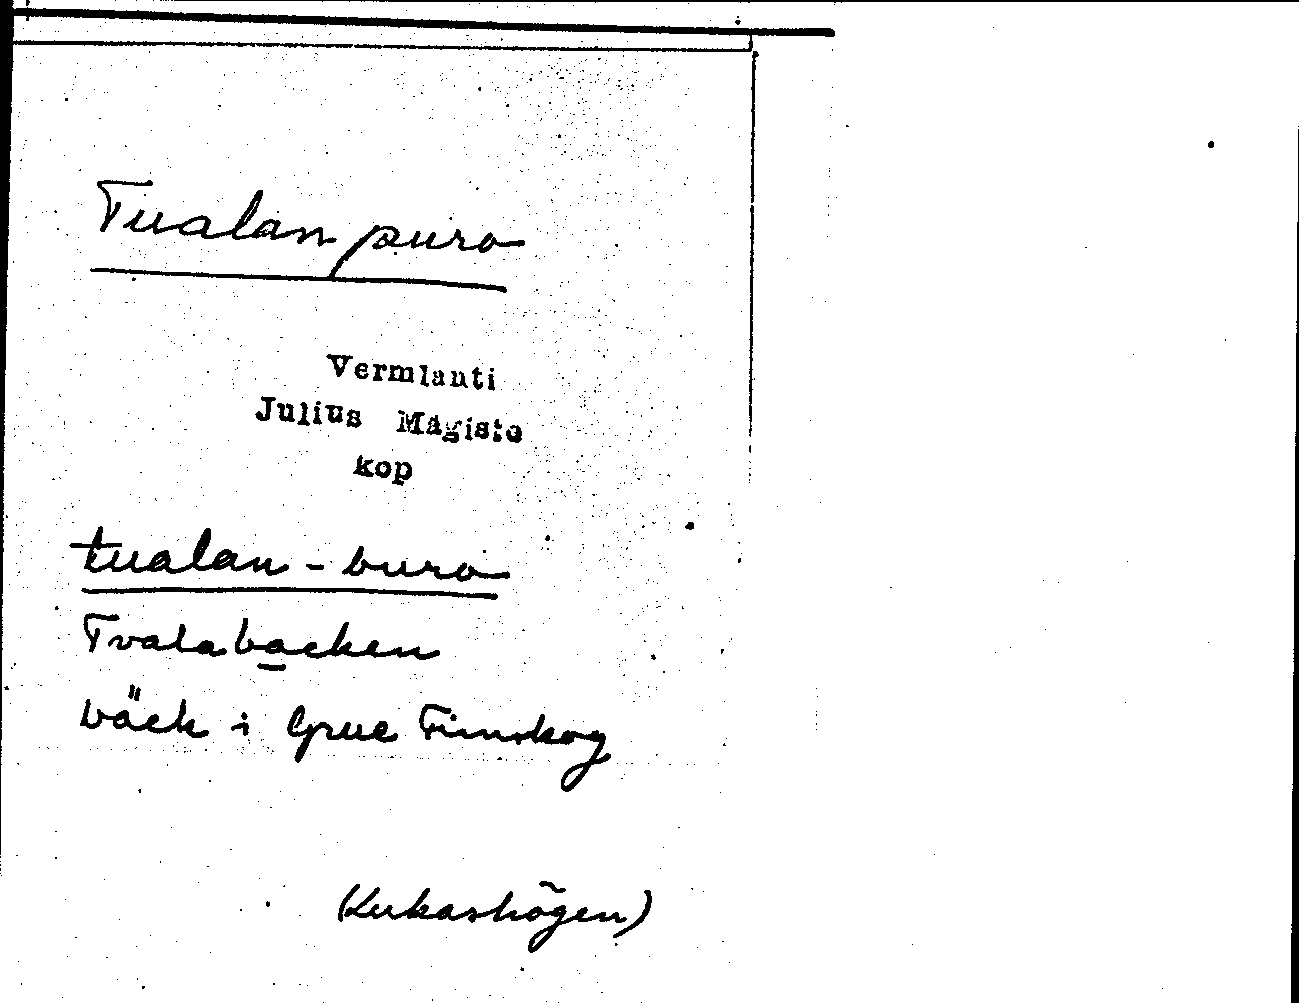 Tualan puro
Vermlanti
Julius Mägiste
kop
tualan-buro
Tvalabacken
bäck i Grue Finnskog
(Lukashögen)